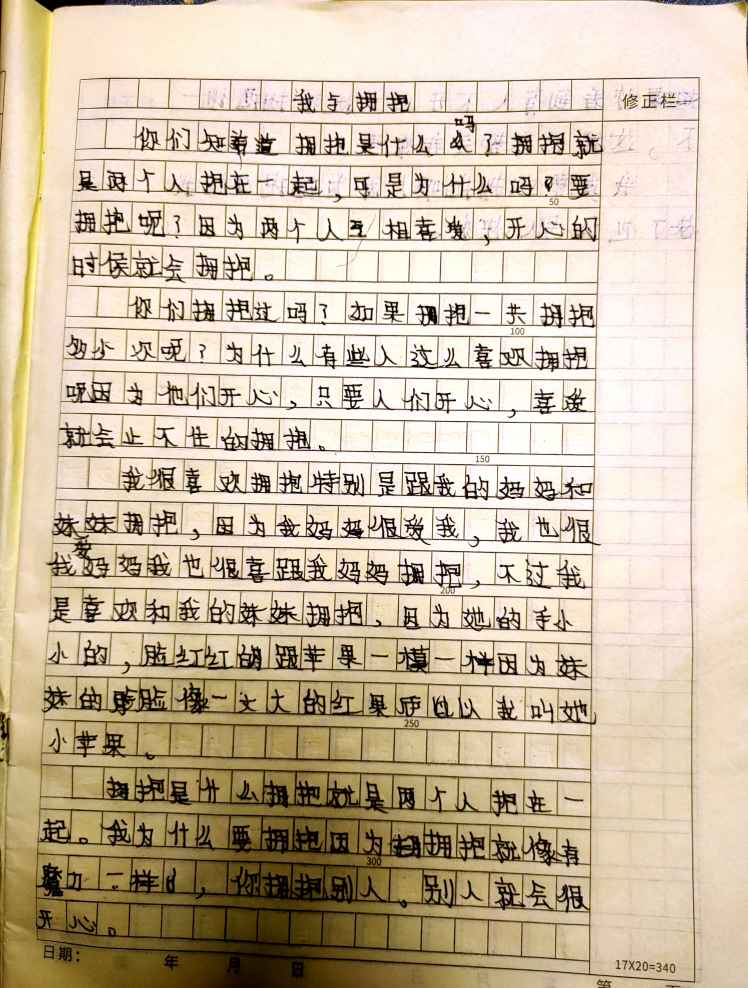 我与拥抱
修正栏
你们知道拥抱是什么吗？拥抱就
是两个人抱在一起，可是为什么吗？要
50
拥抱呢？因为两个人互相喜爱，开心的
时候就会拥抱。
你们拥抱过吗？如果拥抱一共拥抱
100
多少次呢？为什么有些人这么喜欢拥抱
呢因为他们开心，只要人们开心，喜爱
就会止不住的拥抱。
150
我很喜欢拥抱特别是跟我的妈妈和
妹妹拥抱，因为我妈妈很爱我，我也很
爱
我妈妈我也很喜跟我妈妈拥抱，不过我
200
是喜欢和我的妹妹拥抱，因为她的手小
小的，脸红红的跟苹果一模一样因为妹
妹的脸像一大大的红果所以以我叫她
250
小苹果。
拥抱是什么拥抱就是两个人抱在一
起。我为什么要拥抱因为拥抱就像有
300
魔力一样，你拥抱别人。别人就会很
开心。
日期： 年 月 日
17X20=340
第 页